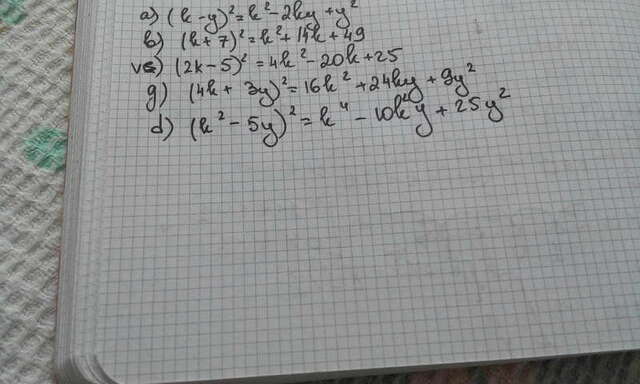 a) (k-y)² = k² - 2ky + y²
b) (k+7)² = k² + 14k + 49
v) (2k-5)² = 4k² - 20k + 25
g) (4k + 3y)² = 16k² + 24ky + 9y²
d) (k² - 5y)² = k⁴ - 10k²y + 25y²